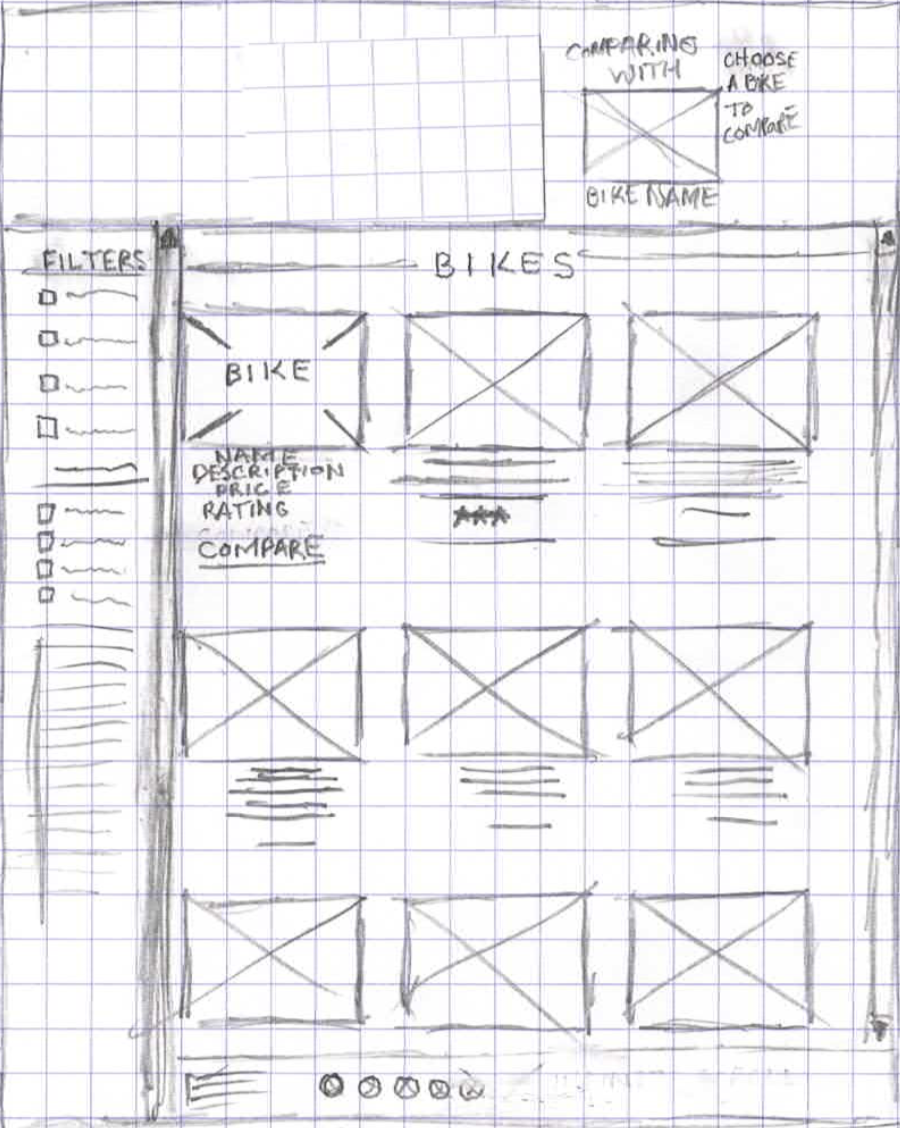 COMPARING
WITH
CHOOSE
A BIKE
TO
COMPARE
BIKE NAME
FILTERS
BIKES
BIKE
NAME
DESCRIPTION
PRICE
RATING
COMPARE